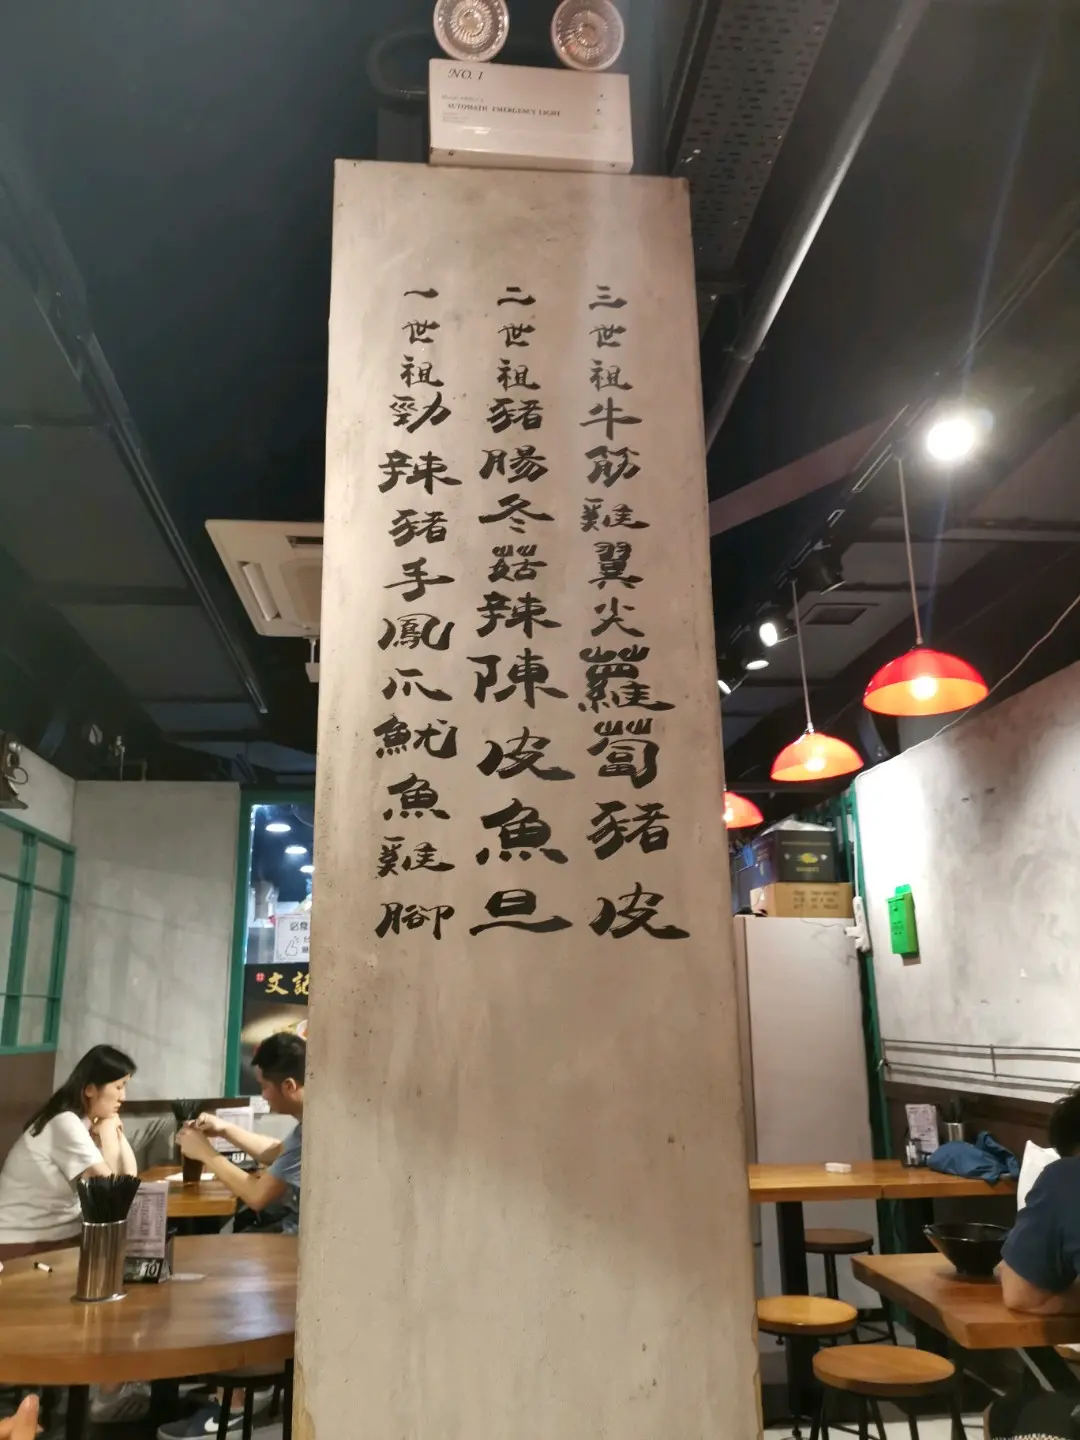 NO. 1
AUTOMATIC EMERGENCY LIGHT
一世祖勁辣豬手鳳爪魷魚雞腳
二世祖豬腸冬菇辣陳皮魚旦
三世祖牛筋雞翼尖蘿蔔豬皮
文記
10